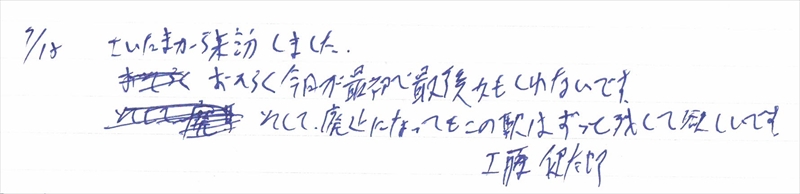 7/18 さいたまから来訪しました.
おそらく おそらく今日が最初で最後かもしれないです
そして廃 そして、廃止になってもこの駅はずっと残して欲しいです
工藤 健太郎